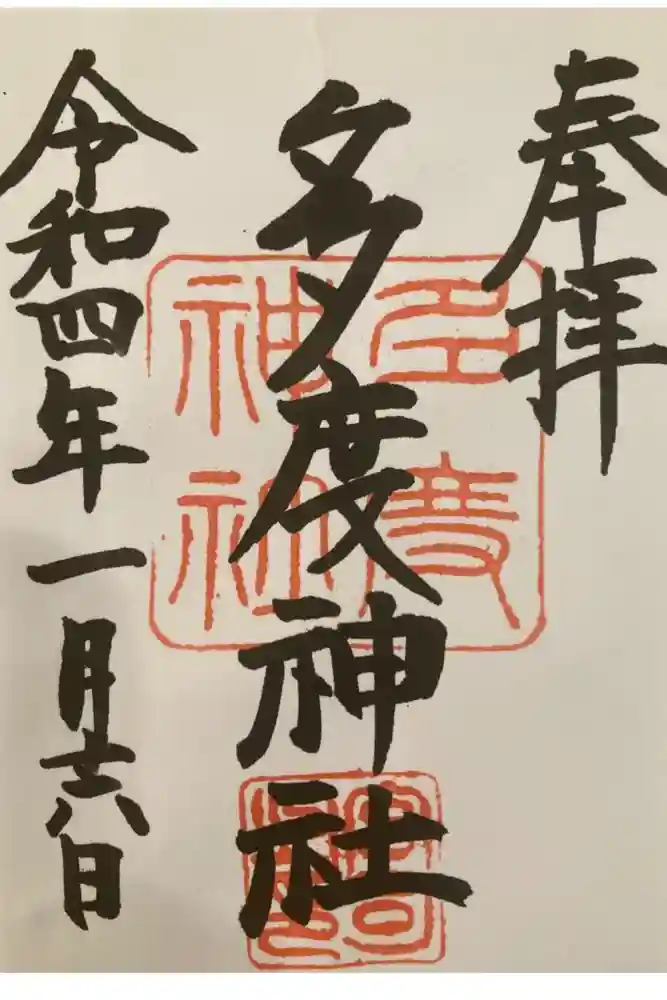 奉拝
多度神社
令和四年一月十六日
多度
神社